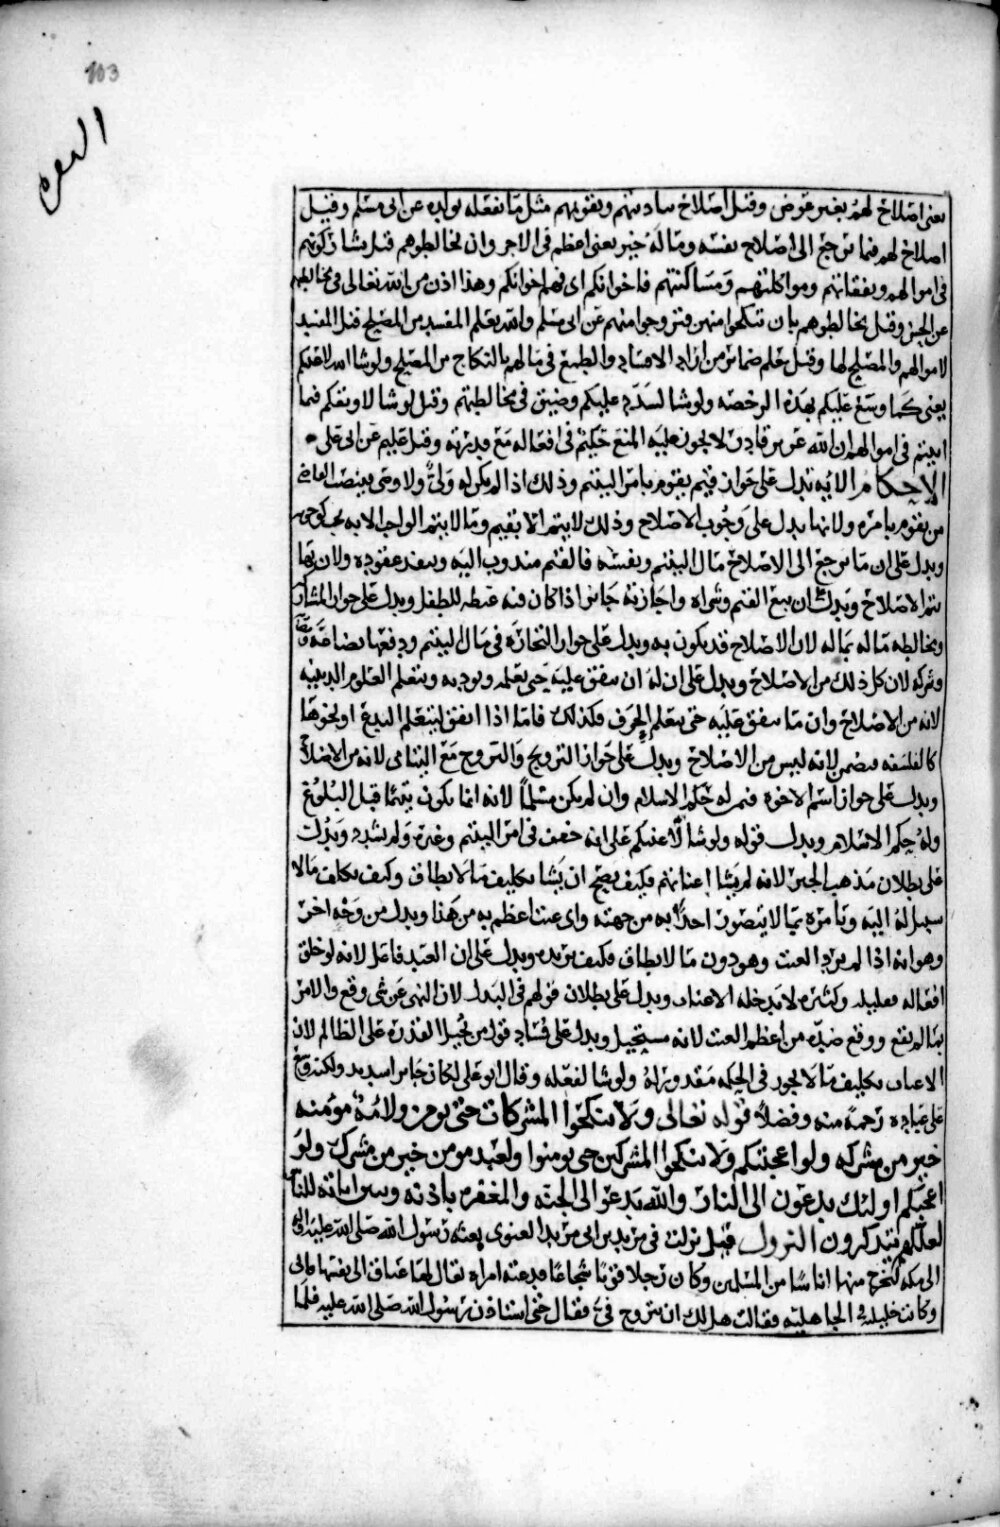 103
البقرة
يعنى اصلاح لهم بغير عوض وقيل اصلاح بتاديبهم وتقويمهم مثل ما يفعله بولده عن ابى مسلم وقيل
اصلاح لهم فيما يرجع الى اصلاح نفسه وماله خير يعنى اعظم فى الاجر وان تخالطوهم قيل بشارككم
فى اموالهم ونفقاتهم ومواكلتهم ومساكنتهم فاخوانكم اى فهم اخوانكم وهذا اذن من الله تعالى فى مخالطتهم
عن الحسن وقيل تخالطوهم بان تنكحوا منهن وتزوجوا منهم عن ابى مسلم والله يعلم المفسد من المصلح قيل المفسد
لاموالهم والمصلح لها وقيل يعلم ضمائر من اراد الافساد والطمع فى مالهم بالنكاح من المصلح ولو شا الله لاعنتكم
يعنى كما وسع عليكم بهذه الرخصه ولو شا لشدد عليكم وضيق فى مخالطتهم وقيل لو شا لاوبقكم فيما
اصبتم فى اموالهم ان الله عزيز قادر لا يجوز عليه المنع حكيم فى افعاله مع قدرته وقيل عليم عن ابى على
الاحكام الايه تدل على جواز قيم يقوم بامر اليتيم وذلك اذا لم يكن له ولى ولا وصى ينصب القاضى
من يقوم بامره ولانها تدل على وجوب الاصلاح وذلك لا يتم الا بقيم وما لا يتم الواجب الا به يجب كوجوبه
ويدل على ان ما يرجع الى الاصلاح مال اليتيم ونفسه فالقيم مندوب اليه وينفذ عقوده ولان بها
يتم الاصلاح ويدل ان بيع القيم وشراه واجازته جايز اذا كان فيه غبطه للطفل ويدل على جواز المشاركه
ومخالطه ماله بماله لان الاصلاح قد يكون به ويدل على جواز التجاره فى مال اليتيم ودفعها بضاعه
وشركه لان كل ذلك من الاصلاح ويدل على ان له ان ينفق عليه حتى يعلمه ويودبه ويتعلم العلوم الدينيه
لانه من الاصلاح وان ما ينفق عليه حتى يتعلم الحرف فكذلك فاما اذا انفق ليتعلم البدع او نحوها
كالفلسفه يضمن لانه ليس من الاصلاح ويدل على جواز التزويج والتزوج مع اليتامى لانه من الاصلاح
ويدل على جواز اسم الاخوه فيمن له حكم الاسلام وان لم يكن مسلما لانه انما يكون يتيما قبل البلوغ
وله حكم الاسلام ويدل قوله ولو شا لاعنتكم على انه خفف فى امر اليتيم وغيره ولم يشدد ويدل
على بطلان مذهب الجبر لانه لم يشا اعناتهم فكيف يصح ان يشا تكليف ما لا يطاق وكيف يكلف مالا
سبيل له اليه ويامره بما لا يتصور احداثه من جهته واى عنت اعظم به من هذا ويدل من وجه اخر
وهو انه اذا لم يرد العنت وهو دون ما لا يطاق فكيف يريده ويدل على ان العبد فاعل لانه لو خلق
افعاله فقليله وكثيره لا يدخله الاعنات ويدل على بطلان قولهم فى البدل لان النهى عن شى وقع والامر
بما لم يقع ووقع ضده من اعظم العنت لانه مستحيل ويدل على فساد قول من يحيل القدره على الظلم لان
الاعنات تكليف ما لا يجوز فى الحكمه مقدورا له ولو شا لفعله وقال ابو على لكان جايز ا
على عباده رحمة منه وفضلا قوله تعالى ولا تنكحوا المشركات حتى يومن ولامة مومنه
خير من مشركه ولو اعجبتكم ولا تنكحوا المشركين حتى يومنوا ولعبد مومن خير من مشرك ولو
اعجبكم اولئك يدعون الى النار والله يدعو الى الجنه والمغفره باذنه ويبين اياته للناس
لعلهم يتذكرون النزول قيل نزلت فى مرثد بن ابى مرثد الغنوى بعثه رسول الله صلى الله عليه واله
الى مكه ليخرج منها اناسا من المسلمين وكان رجلا قويا شجاعا فدعته امراه يقال لها عناق الى نفسها فابى
وكانت خليلته فى الجاهليه فقالت هل لك ان تتزوج بى فقال حتى استاذن رسول الله صلى الله عليه فلما